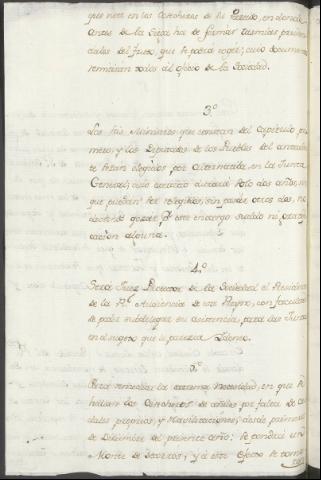 que nete en las Cosecheros de su Partido, en donde
antes de la Saca ha de formar tasmias pruden
ciales del fruto, que se podrá coger; cuio documento
remitirán todos al oficio de la Sociedad.
3.º
Los seis Ministros que constan del Capitulo pri
mero, y los Diputados de los Pueblos del
serán elegidos por alternativa en la Junta
General; cuio durará solo dos años, sin
que puedan ser reelegidos, sin pasar otros dos, no
debiendo gozar por este encargo sueldo ni grati
cación alguna.
4.º
Será Juez Director de la Sociedad el Presidente
de la Rl. Audiencia de este Reyno, con facultad
de poder subdelegar su asistencia, para las Juntas
en el sugeto que le parezca Idoneo.
5.º
Para remediar la extrema necesidad, en que se
hallan los Cosecheros de por falta de cau
dales propios, y havilitaciones; desde primero
de Diciembre del presente año: se pondrá un
Monte de Socorros, y a este efecto se toma